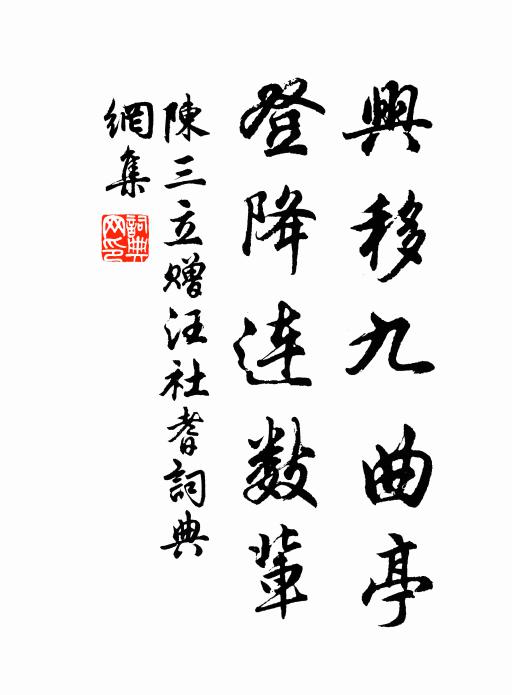 興移九曲亭
登降連数輩
陳三立赠汪社耆詞典
網集
詞典网印